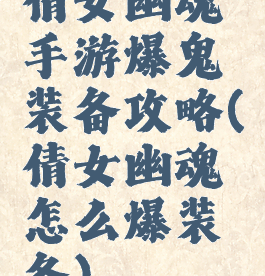 倩女幽魂
手游爆鬼
装备攻略(
倩女幽魂
怎么爆装
备)